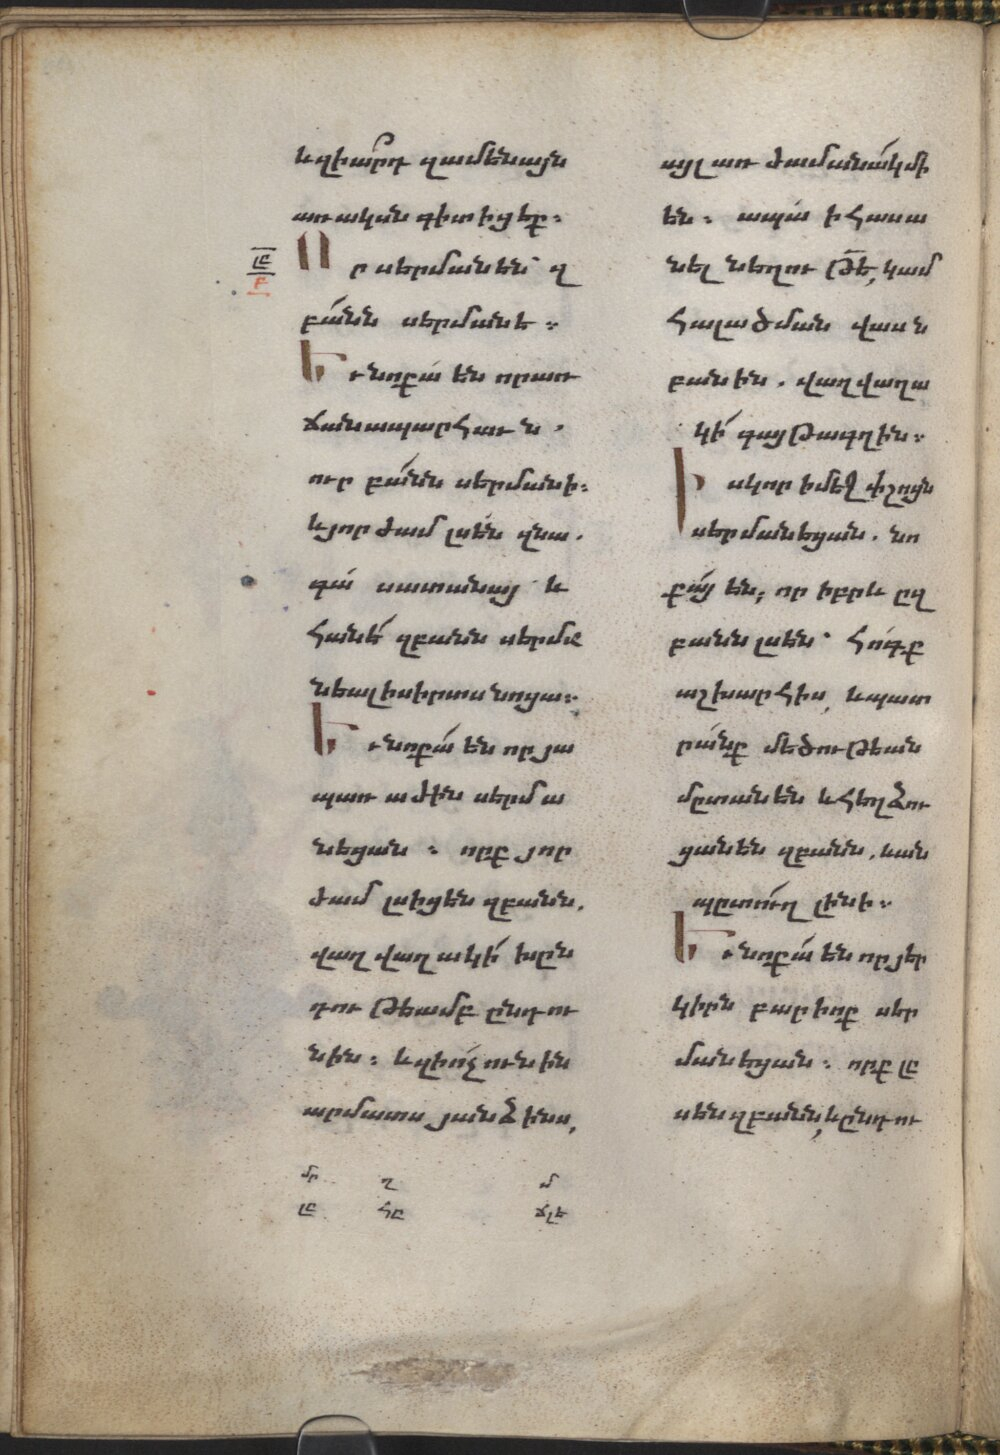 և զիա՞րդ զամենայն
առական գիտիցեք։
Որ սերմանեն՝ զ
բա՛նն սերմանէ։
Եւ նոքա՛ են որ առ
ճանապարհաւն.
ուր բա՛նն սերմանի։
և յորժամ լսեն զնա.
գա՛ սատանայ և
հանէ՛ զբանն սերմա
նեալ ի սիրտս նոցա։
Եւ նոքա՛ են որ յա
պառաժին սերմա
նեցան։ որք յոր
ժամ լսիցեն զբանն.
վաղվաղակի՛ խըն
դութեամբ ընդու
նին։ և զի ո՛չ ունին
արմատս յանձինս,
լբ
բ
մր ղ մ
լբ հը ճլե
այլ առ ժամանա՛կ մի
են։ ապա՛ ի հասա
նել նեղութե՛, կամ
հալածման վասն
բանին. վաղվաղա
կի՛ գայթագղին։
Իսկ որ ի մէջ փշոցն
սերմանեցան. նո
քա՛յ են։ որ իբրև ըզ
բանն լսեն՝ հոգք
աշխարհիս, և պատ
րա՛նք մեծութեան
մըտանեն և հեղձու
ցանեն զբանն. և ան
պըտո՛ւղ լինի։
Եւ նոքա՛ են որ յեր
կիրն բարիոք սեր
մանեցան։ որք լը
սեն զբանն, և ընդու